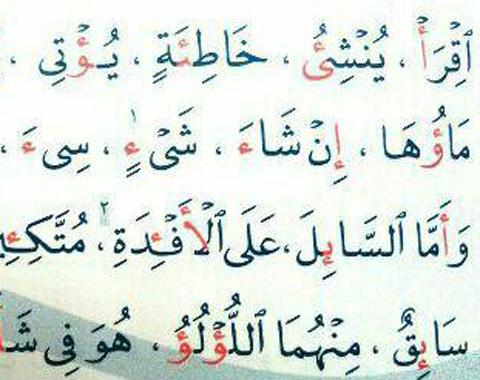 ٱقْرَأْ ، يُنْشِئُ ، خَاطِئَةٍ ، يُؤْتِى ،
مَاؤُهَا ، إِنْ شَاءَ ، شَىْءٍ ، سِىءَ ،
وَأَمَّا ٱلسَّائِلَ ، عَلَى ٱلْأَفْـِٔدَةِ ،
سَائِقٌ ، مِنْهُمَا ٱللُّؤْلُؤُ ، هُوَ فِى